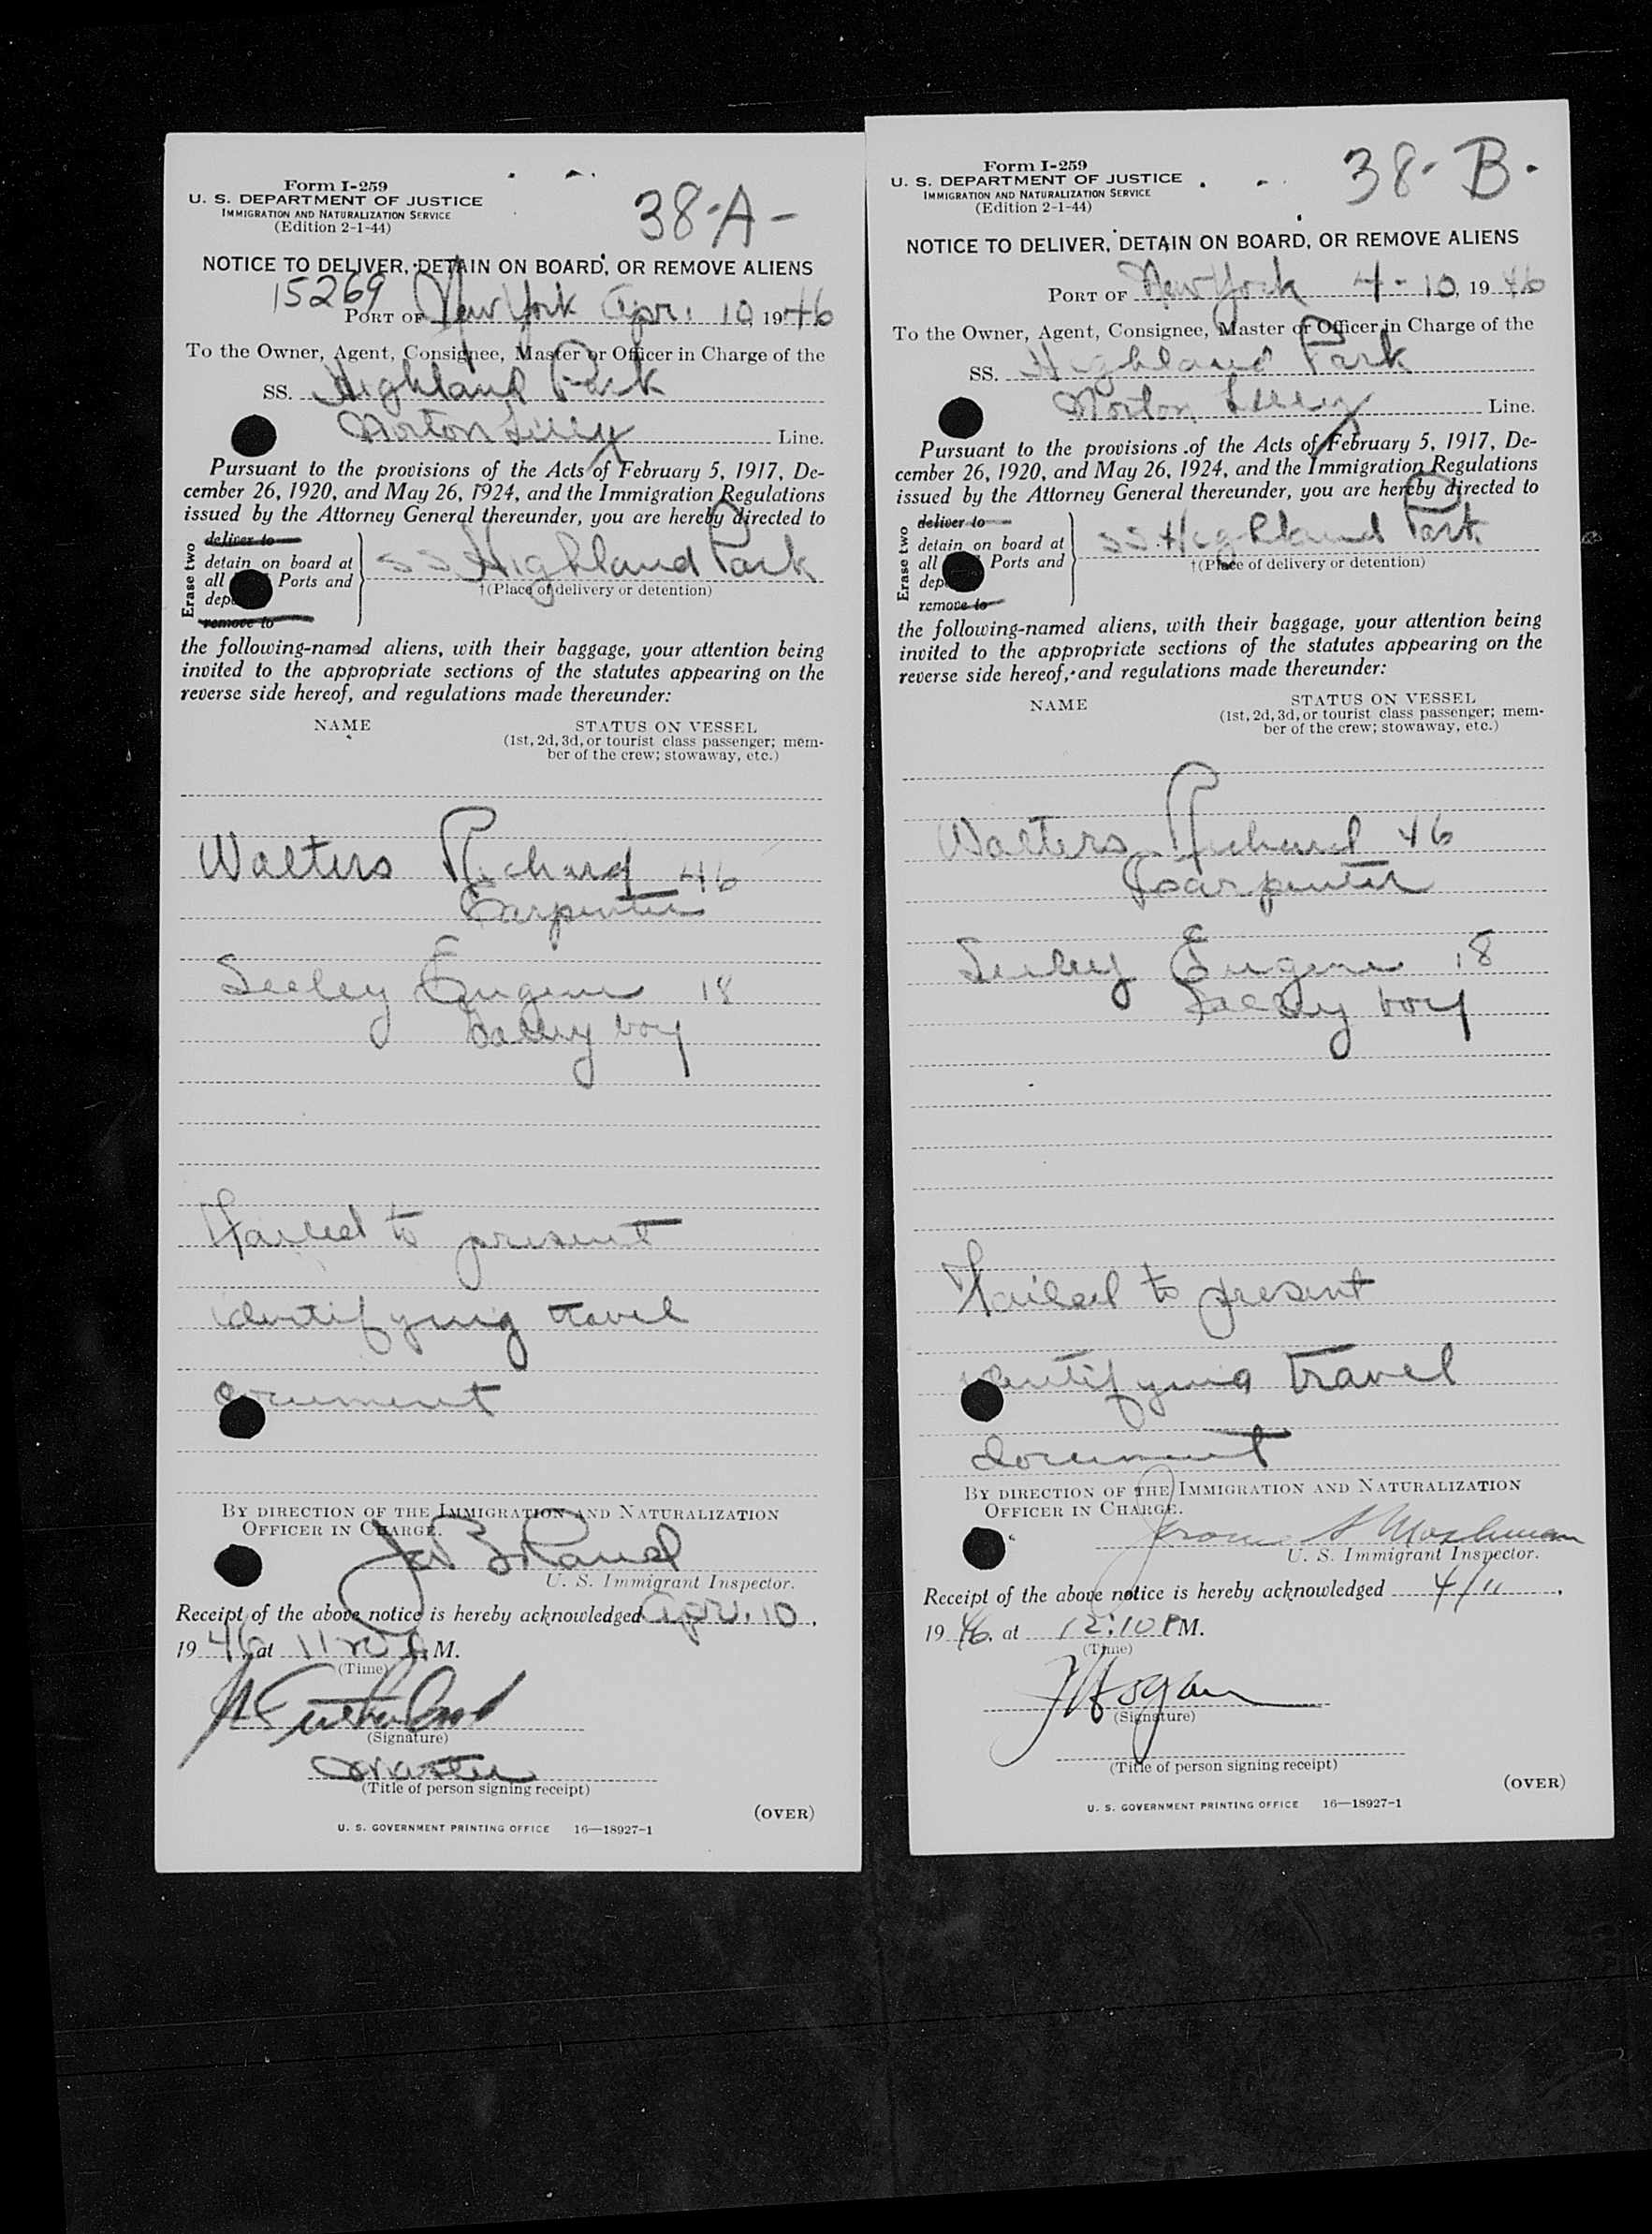 Form I-259
U. S. DEPARTMENT OF JUSTICE
IMMIGRATION AND NATURALIZATION SERVICE
(Edition 2-1-44)
38-A-
NOTICE TO DELIVER, DETAIN ON BOARD, OR REMOVE ALIENS
15269
PORT OF New York Apr. 10, 1946
To the Owner, Agent, Consignee, Master or Officer in Charge of the
SS. Highland Park
Norton Lilly Line.
Pursuant to the provisions of the Acts of February 5, 1917, De-
cember 26, 1920, and May 26, 1924, and the Immigration Regulations
issued by the Attorney General thereunder, you are hereby directed to
Erase two
deliver to
detain on board at
all Ports and
remove to
SS. Highland Park
†(Place of delivery or detention)
the following-named aliens, with their baggage, your attention being
invited to the appropriate sections of the statutes appearing on the
reverse side hereof, and regulations made thereunder:
NAME
STATUS ON VESSEL
(1st, 2d, 3d, or tourist class passenger; mem-
ber of the crew; stowaway, etc.)
Walters Richard 46
Carpenter
Seeley Eugene 18
boy
Failed to present
identifying travel
document
BY DIRECTION OF THE IMMIGRATION AND NATURALIZATION
OFFICER IN CHARGE.
U. S. Immigrant Inspector.
Receipt of the above notice is hereby acknowledged Apr. 10,
1946, at 11 A.M.
(Time)
(Signature)
Master
(Title of person signing receipt)
(OVER)
U. S. GOVERNMENT PRINTING OFFICE 16—18927-1
Form I-259
U. S. DEPARTMENT OF JUSTICE
IMMIGRATION AND NATURALIZATION SERVICE
(Edition 2-1-44)
38-B.
NOTICE TO DELIVER, DETAIN ON BOARD, OR REMOVE ALIENS
PORT OF New York 4-10, 1946
To the Owner, Agent, Consignee, Master or Officer in Charge of the
SS. Highland Park
Norton Lilly Line.
Pursuant to the provisions of the Acts of February 5, 1917, De-
cember 26, 1920, and May 26, 1924, and the Immigration Regulations
issued by the Attorney General thereunder, you are hereby directed to
Erase two
deliver to
detain on board at
all Ports and
remove to
SS. Highland Park
†(Place of delivery or detention)
the following-named aliens, with their baggage, your attention being
invited to the appropriate sections of the statutes appearing on the
reverse side hereof, and regulations made thereunder:
NAME
STATUS ON VESSEL
(1st, 2d, 3d, or tourist class passenger; mem-
ber of the crew; stowaway, etc.)
Walters, Richard 46
Carpenter
Seeley Eugene 18
boy
Failed to present
identifying travel
document
BY DIRECTION OF THE IMMIGRATION AND NATURALIZATION
OFFICER IN CHARGE.
Jerome
U. S. Immigrant Inspector.
Receipt of the above notice is hereby acknowledged 4/11,
1946, at 12:10 P.M.
(Time)
J Hogan
(Signature)
(Title of person signing receipt)
(OVER)
U. S. GOVERNMENT PRINTING OFFICE 16—18927-1